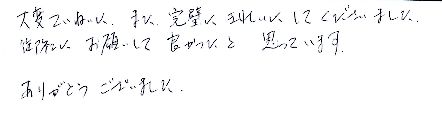 大変ていねいに、また、完璧に 美しく して くださいました。
お願いして 良かったと 思っています。
ありがとう ございました。